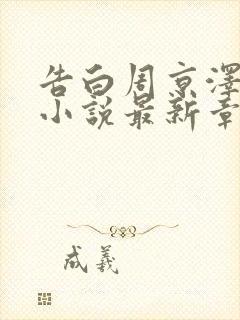 告白周京澤
小說最新章
成羲